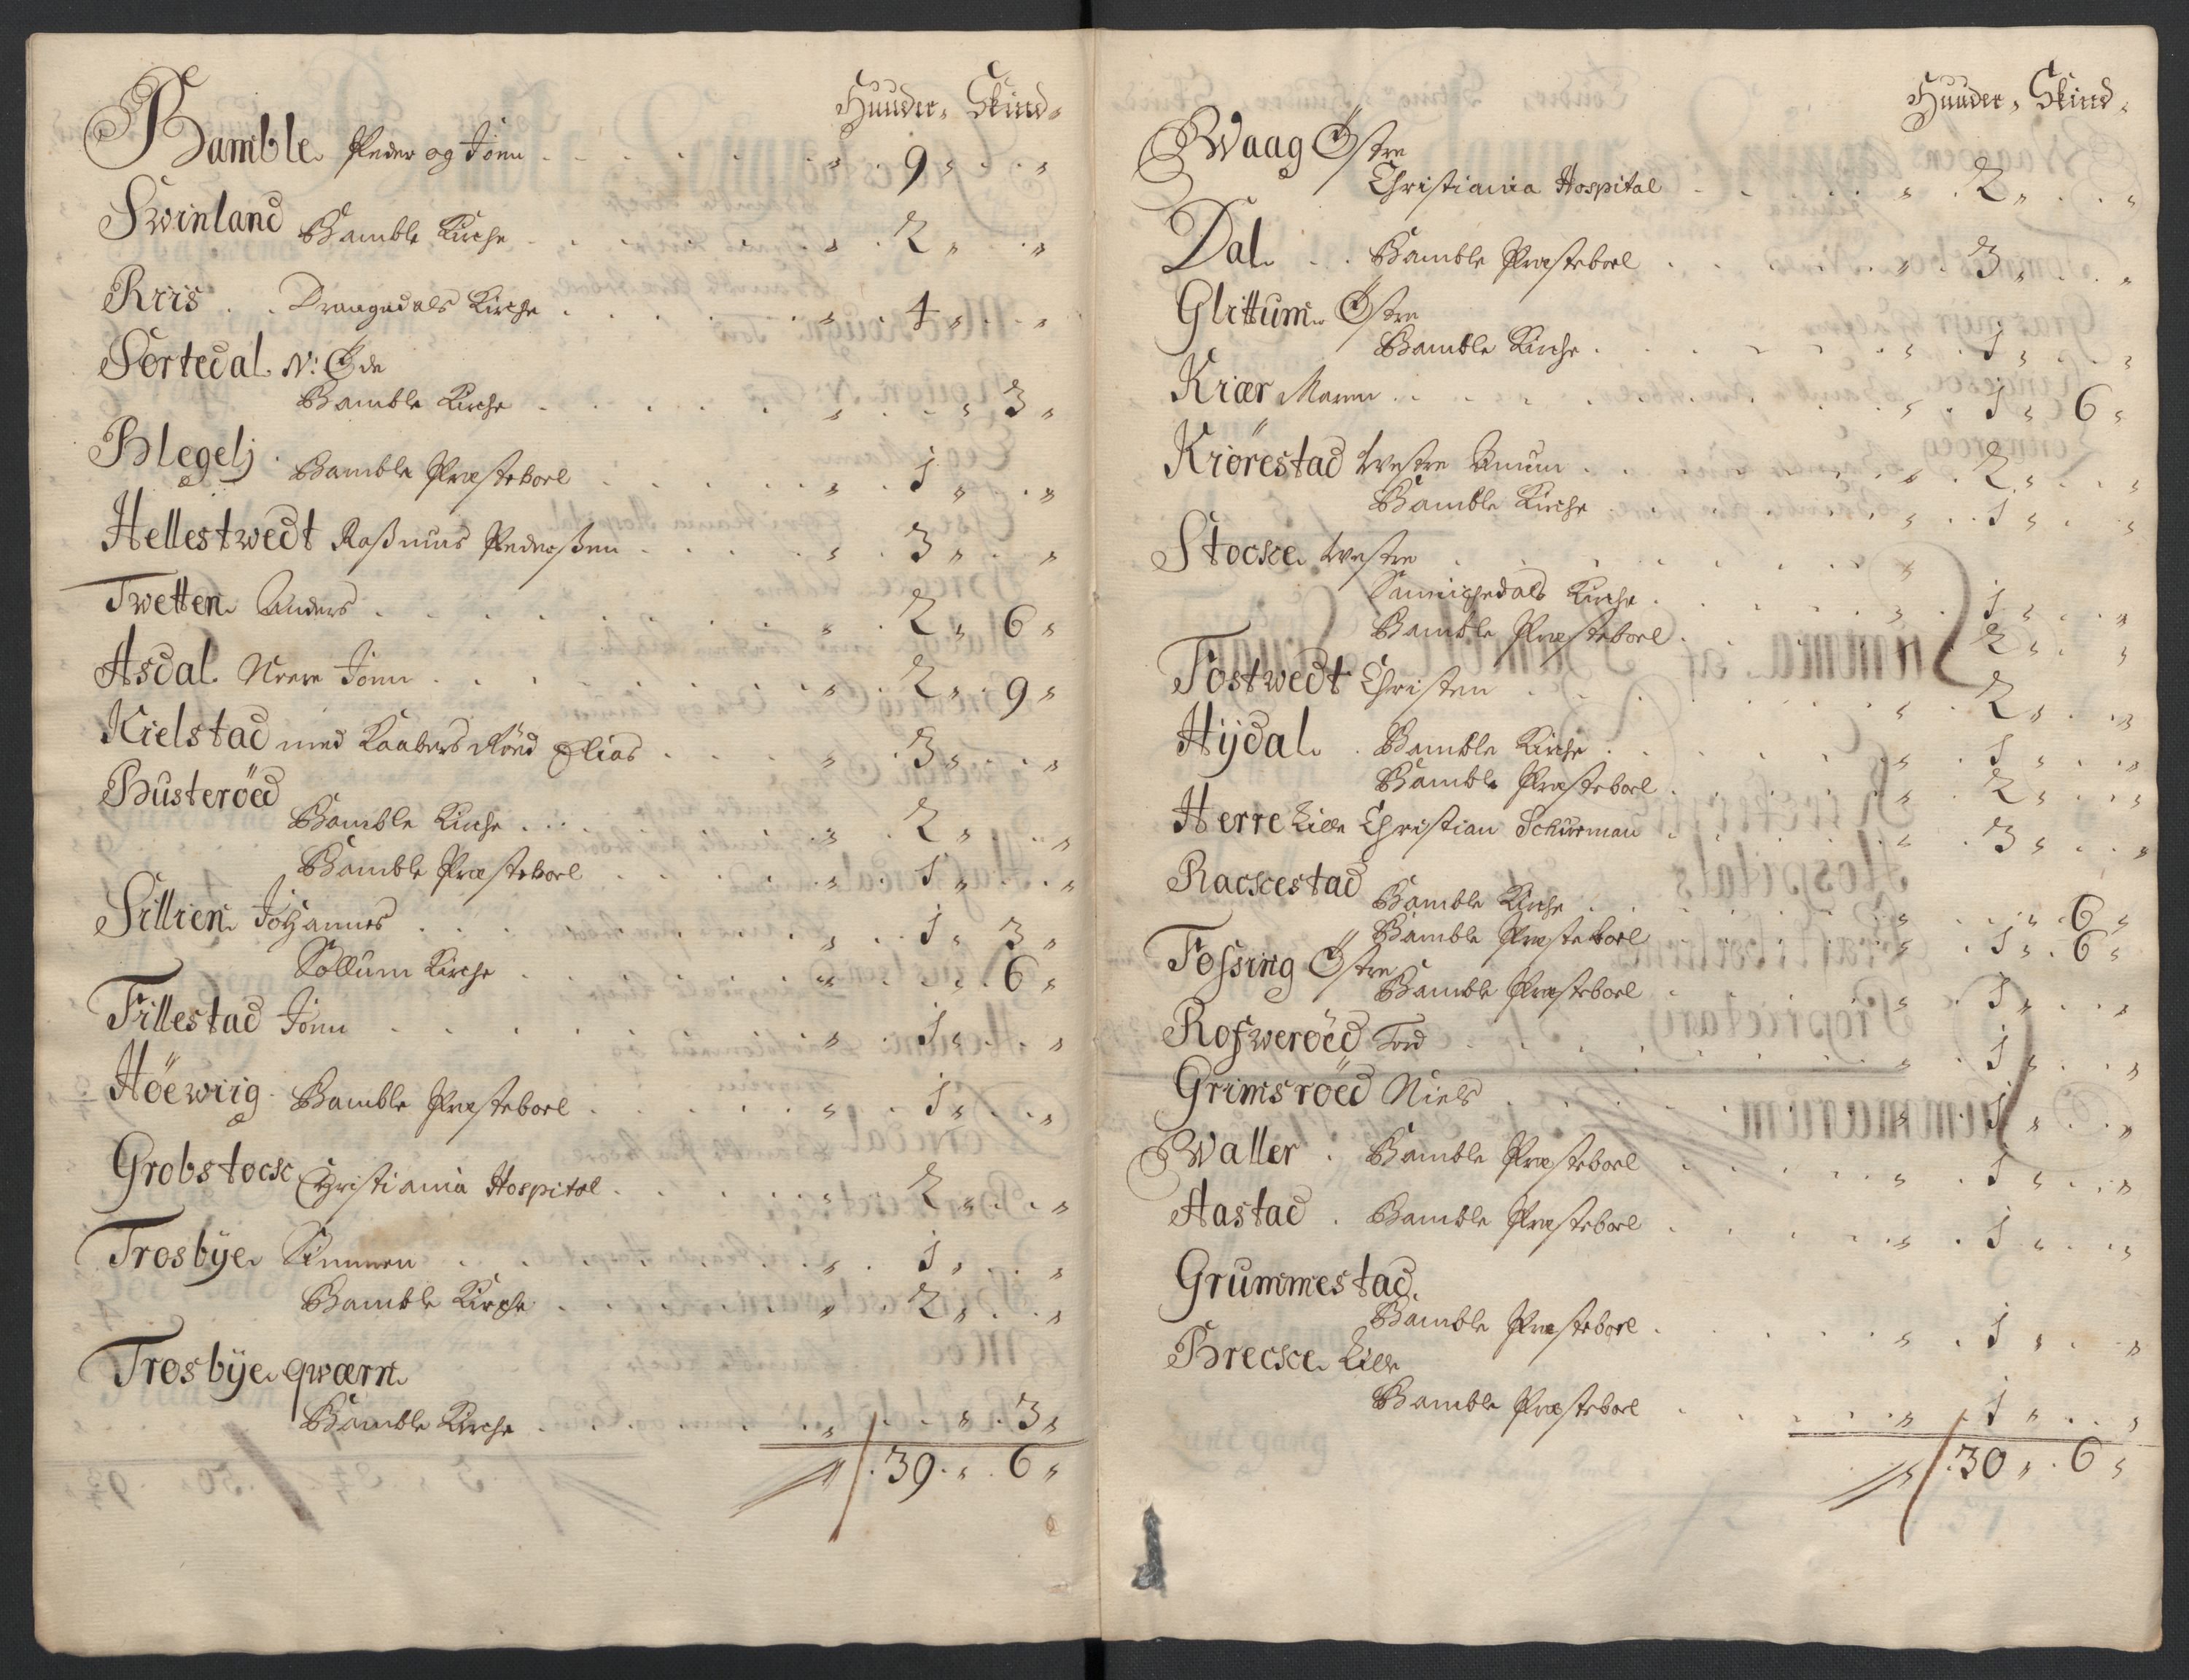 Huuder, Skind,
Bamble Peder og Jonn . . . . . . „ . 9 „ . . „
Swinland Bamble Kirche . . . . . „ . 2 „ . . „
Riis . . Draagedals Kirche . . . . . „ . 4 „ . . „
Sortedal N: Øde
Bamble Kirche . . . . . „ . . „ 3 „
Blegelj . Bamble Præsteboel . . . . . „ . 1 „ . . „
Hellestwedt Rasmus Pederssen . . . . „ . 3 „ . . „
Twetten Anders . . . . . . „ . 2 „ 6 „
Asdal Nerre Jonn . . . . . . „ . 2 „ . 9 „
Kielstad med Kaabers Röed Elias . . . . „ . 3 „ . . „
Busteröed
Bamble Kirche . . . . . „ . 2 „ . . „
Bamble Præsteboel . . . . „ . 1 „ . . „
Sillien Johannes . . . . . „ . . 1 „ 3 „
Sollum Kirche . . . . . „ . . „ 6 „
Tillestad Jonn . . . . . . „ . 1 „ . . „
Höewiig . Bamble Præsteboel . . . . . „ . 1 „ . . „
Grobstock Christiania Hospital . . . . . „ . 2 „ . . „
Trosbÿe Simmen . . . . . . „ . 1 „ . . „
Bamble Kirche . . . . . „ . 2 „ . . „
Trosbÿe qwærn
Bamble Kirche . . . . . „ . . „ . 3 „
„ . 39 . „ . 6 „
Huuder, Skind,
Waag Østre
Christiania Hospital . . . . . „ . 2 „ . . „
Dal . . Bamble Præsteboel . . . . . „ . 3 „ . . „
Glittum Østre
Bamble Kirche . . . . . „ . 1 „ . . „
Kiær Maren . . . . . . „ . 1 „ 6 „
Kiörestad Westre Anum . . . . . „ . 2 „ . . „
Bamble Kirche . . . . . „ . 1 „ . . „
Stocke Westre . . . . . . „
Sannichedals Kirche . . . . . „ . 1 „ . . „
Bamble Præsteboel . . . . . 2 „ . . „
Tostwedt Christen . . . . . „ . 2 „ . . „
Hijdal . Bamble Kirche . . . . . „ . 1 „ . . „
Bamble Præsteboel . . . . . „ . 2 „ . . „
Herre Lille Christian Schurman . . . . „ . 3 „ . . „
Rackestad Bamble Kirche . . . . . „ . . „ . 6 „
Bamble Præsteboel . . . . „ . 1 „ . 6 „
Fossing Østre
Bamble Præsteboel . . . . „ . 1 „ . . „
Rofweröed Tord . . . . . . „ . 1 „ . . „
Grimsröed Niels . . . . . . „ . 1 „ . . „
Waller . Bamble Præsteboel . . . . . „ . 1 „ . . „
Aastad . Bamble Præsteboel . . . . . „ . 1 „ . . „
Grummestad
Bamble Præsteboel . . . . . „ . 1 „ . . „
Brecke Lille
Bamble Præsteboel . . . . . „ . 1 „ . . „
„ . 30 „ . 6 „